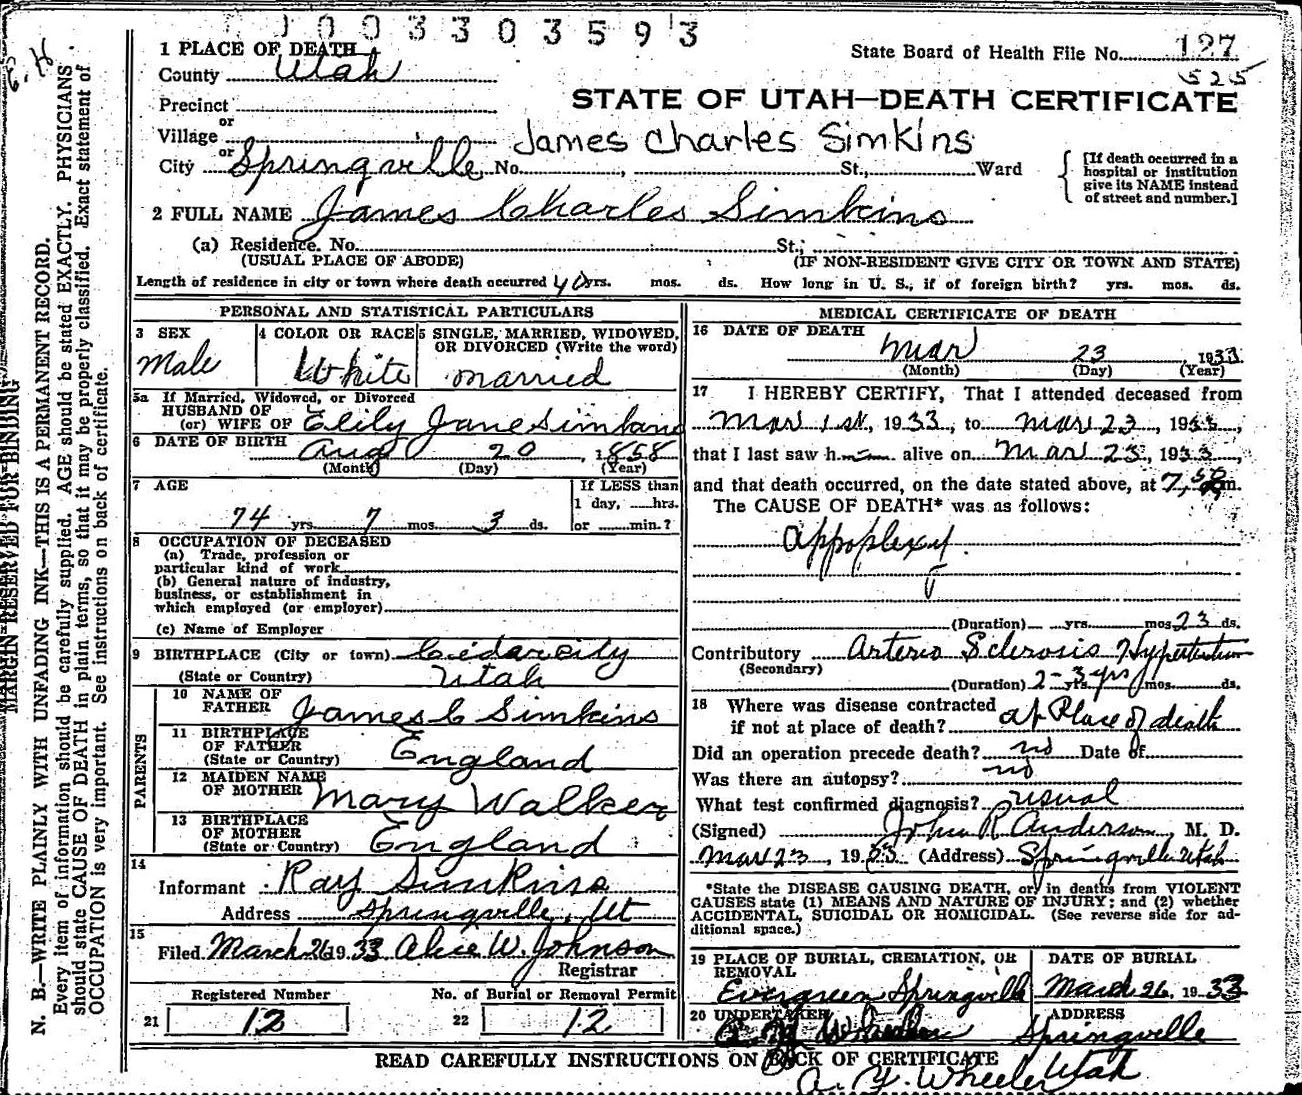 1003303593
E. H.
1 PLACE OF DEATH
State Board of Health File No. 127
County Utah
525
Precinct
STATE OF UTAH—DEATH CERTIFICATE
or
Village
James Charles Simkins
or
City Springville No. , St., Ward
[If death occurred in a hospital or institution give its NAME instead of street and number.]
2 FULL NAME James Charles Simkins
(a) Residence. No. St.;
(USUAL PLACE OF ABODE) (IF NON-RESIDENT GIVE CITY OR TOWN AND STATE)
Length of residence in city or town where death occurred 40 yrs. mos. ds. How long in U. S., if of foreign birth? yrs. mos. ds.
PERSONAL AND STATISTICAL PARTICULARS
3 SEX
Male
4 COLOR OR RACE
White
5 SINGLE, MARRIED, WIDOWED,
OR DIVORCED (Write the word)
married
5a If Married, Widowed, or Divorced
HUSBAND OF
(or) WIFE OF Jane
6 DATE OF BIRTH
Aug 20, 1858
(Month) (Day) (Year)
7 AGE
74 yrs. 7 mos. 3 ds.
If LESS than
1 day, hrs.
or min.?
8 OCCUPATION OF DECEASED
(a) Trade, profession or
particular kind of work
(b) General nature of industry,
business, or establishment in
which employed (or employer)
(c) Name of Employer
9 BIRTHPLACE (City or town) Cedar City
(State or Country) Utah
PARENTS
10 NAME OF
FATHER James C Simkins
11 BIRTHPLACE
OF FATHER
(State or Country) England
12 MAIDEN NAME
OF MOTHER Mary Walker
13 BIRTHPLACE
OF MOTHER
(State or Country) England
14
Informant Ray Simkins
Address Springville, Ut
15
Filed March 26 1933 Alice W. Johnson
Registrar
Registered Number
21 12
No. of Burial or Removal Permit
22 12
MEDICAL CERTIFICATE OF DEATH
16 DATE OF DEATH
Mar 23, 1933
(Month) (Day) (Year)
17 I HEREBY CERTIFY, That I attended deceased from
Mar 1st, 1933, to Mar 23, 1933,
that I last saw him alive on Mar 23, 1933,
and that death occurred, on the date stated above, at 7, m.
The CAUSE OF DEATH* was as follows:
Appoplexy
(Duration) yrs. mos 23 ds.
Contributory Arterio Sclerosis Hypertention
(Secondary)
(Duration) 2-3 yrs yrs. mos. ds.
18 Where was disease contracted
if not at place of death? at Place of death
Did an operation precede death? no Date of
Was there an autopsy? no
What test confirmed diagnosis? usual
(Signed) John R Anderson, M. D.
Mar 23, 1933 (Address) Springville Utah
*State the DISEASE CAUSING DEATH, or, in deaths from VIOLENT
CAUSES state (1) MEANS AND NATURE OF INJURY; and (2) whether
ACCIDENTAL, SUICIDAL OR HOMICIDAL. (See reverse side for ad-
ditional space.)
19 PLACE OF BURIAL, CREMATION, OR
REMOVAL
Evergreen Springville
DATE OF BURIAL
March 26, 1933
20 UNDERTAKER
ADDRESS
Springville
READ CAREFULLY INSTRUCTIONS ON BACK OF CERTIFICATE
A. Y. Wheeler Utah
MARGIN RESERVED FOR BINDING
N. B.—WRITE PLAINLY WITH UNFADING INK—THIS IS A PERMANENT RECORD.
Every item of information should be carefully supplied. AGE should be stated EXACTLY. PHYSICIANS
should state CAUSE OF DEATH in plain terms, so that it may be properly classified. Exact statement of
OCCUPATION is very important. See instructions on back of certificate.